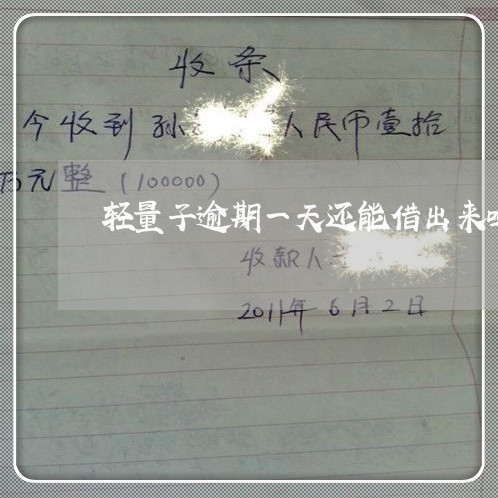 收条
今收到孙 人民币壹拾
万元整(100000)
轻量子逾期一天还能借出来
收款人
2011年6月2日